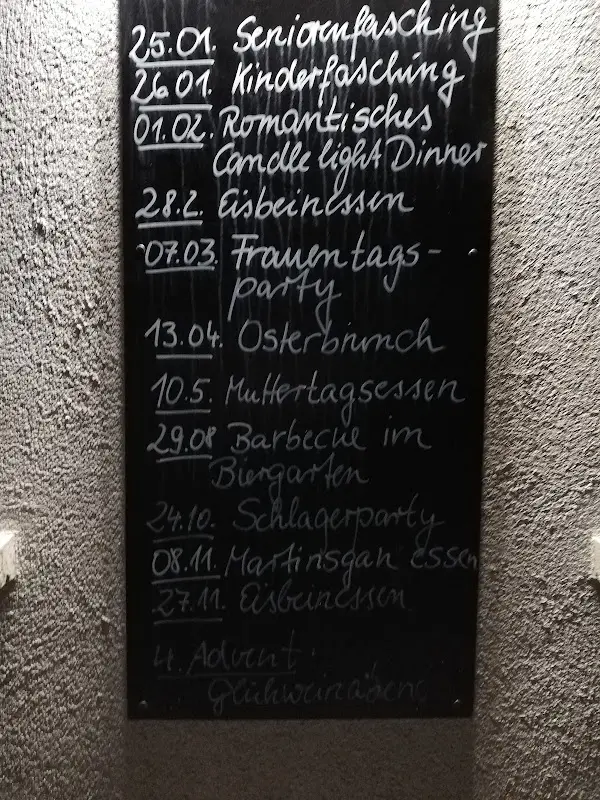 25.01. Seniorenfasching
26.01. Kinderfasching
01.02. Romantisches
Candle light Dinner
28.2. Eisbeinessen
07.03. Frauentags-
party
13.04. Osterbrunch
10.5. Muttertagsessen
29.08 Barbecue im
Biergarten
24.10. Schlagerparty
08.11. Martinsgan essen
27.11. Eisbeinessen
4. Advent
Glühweinabend